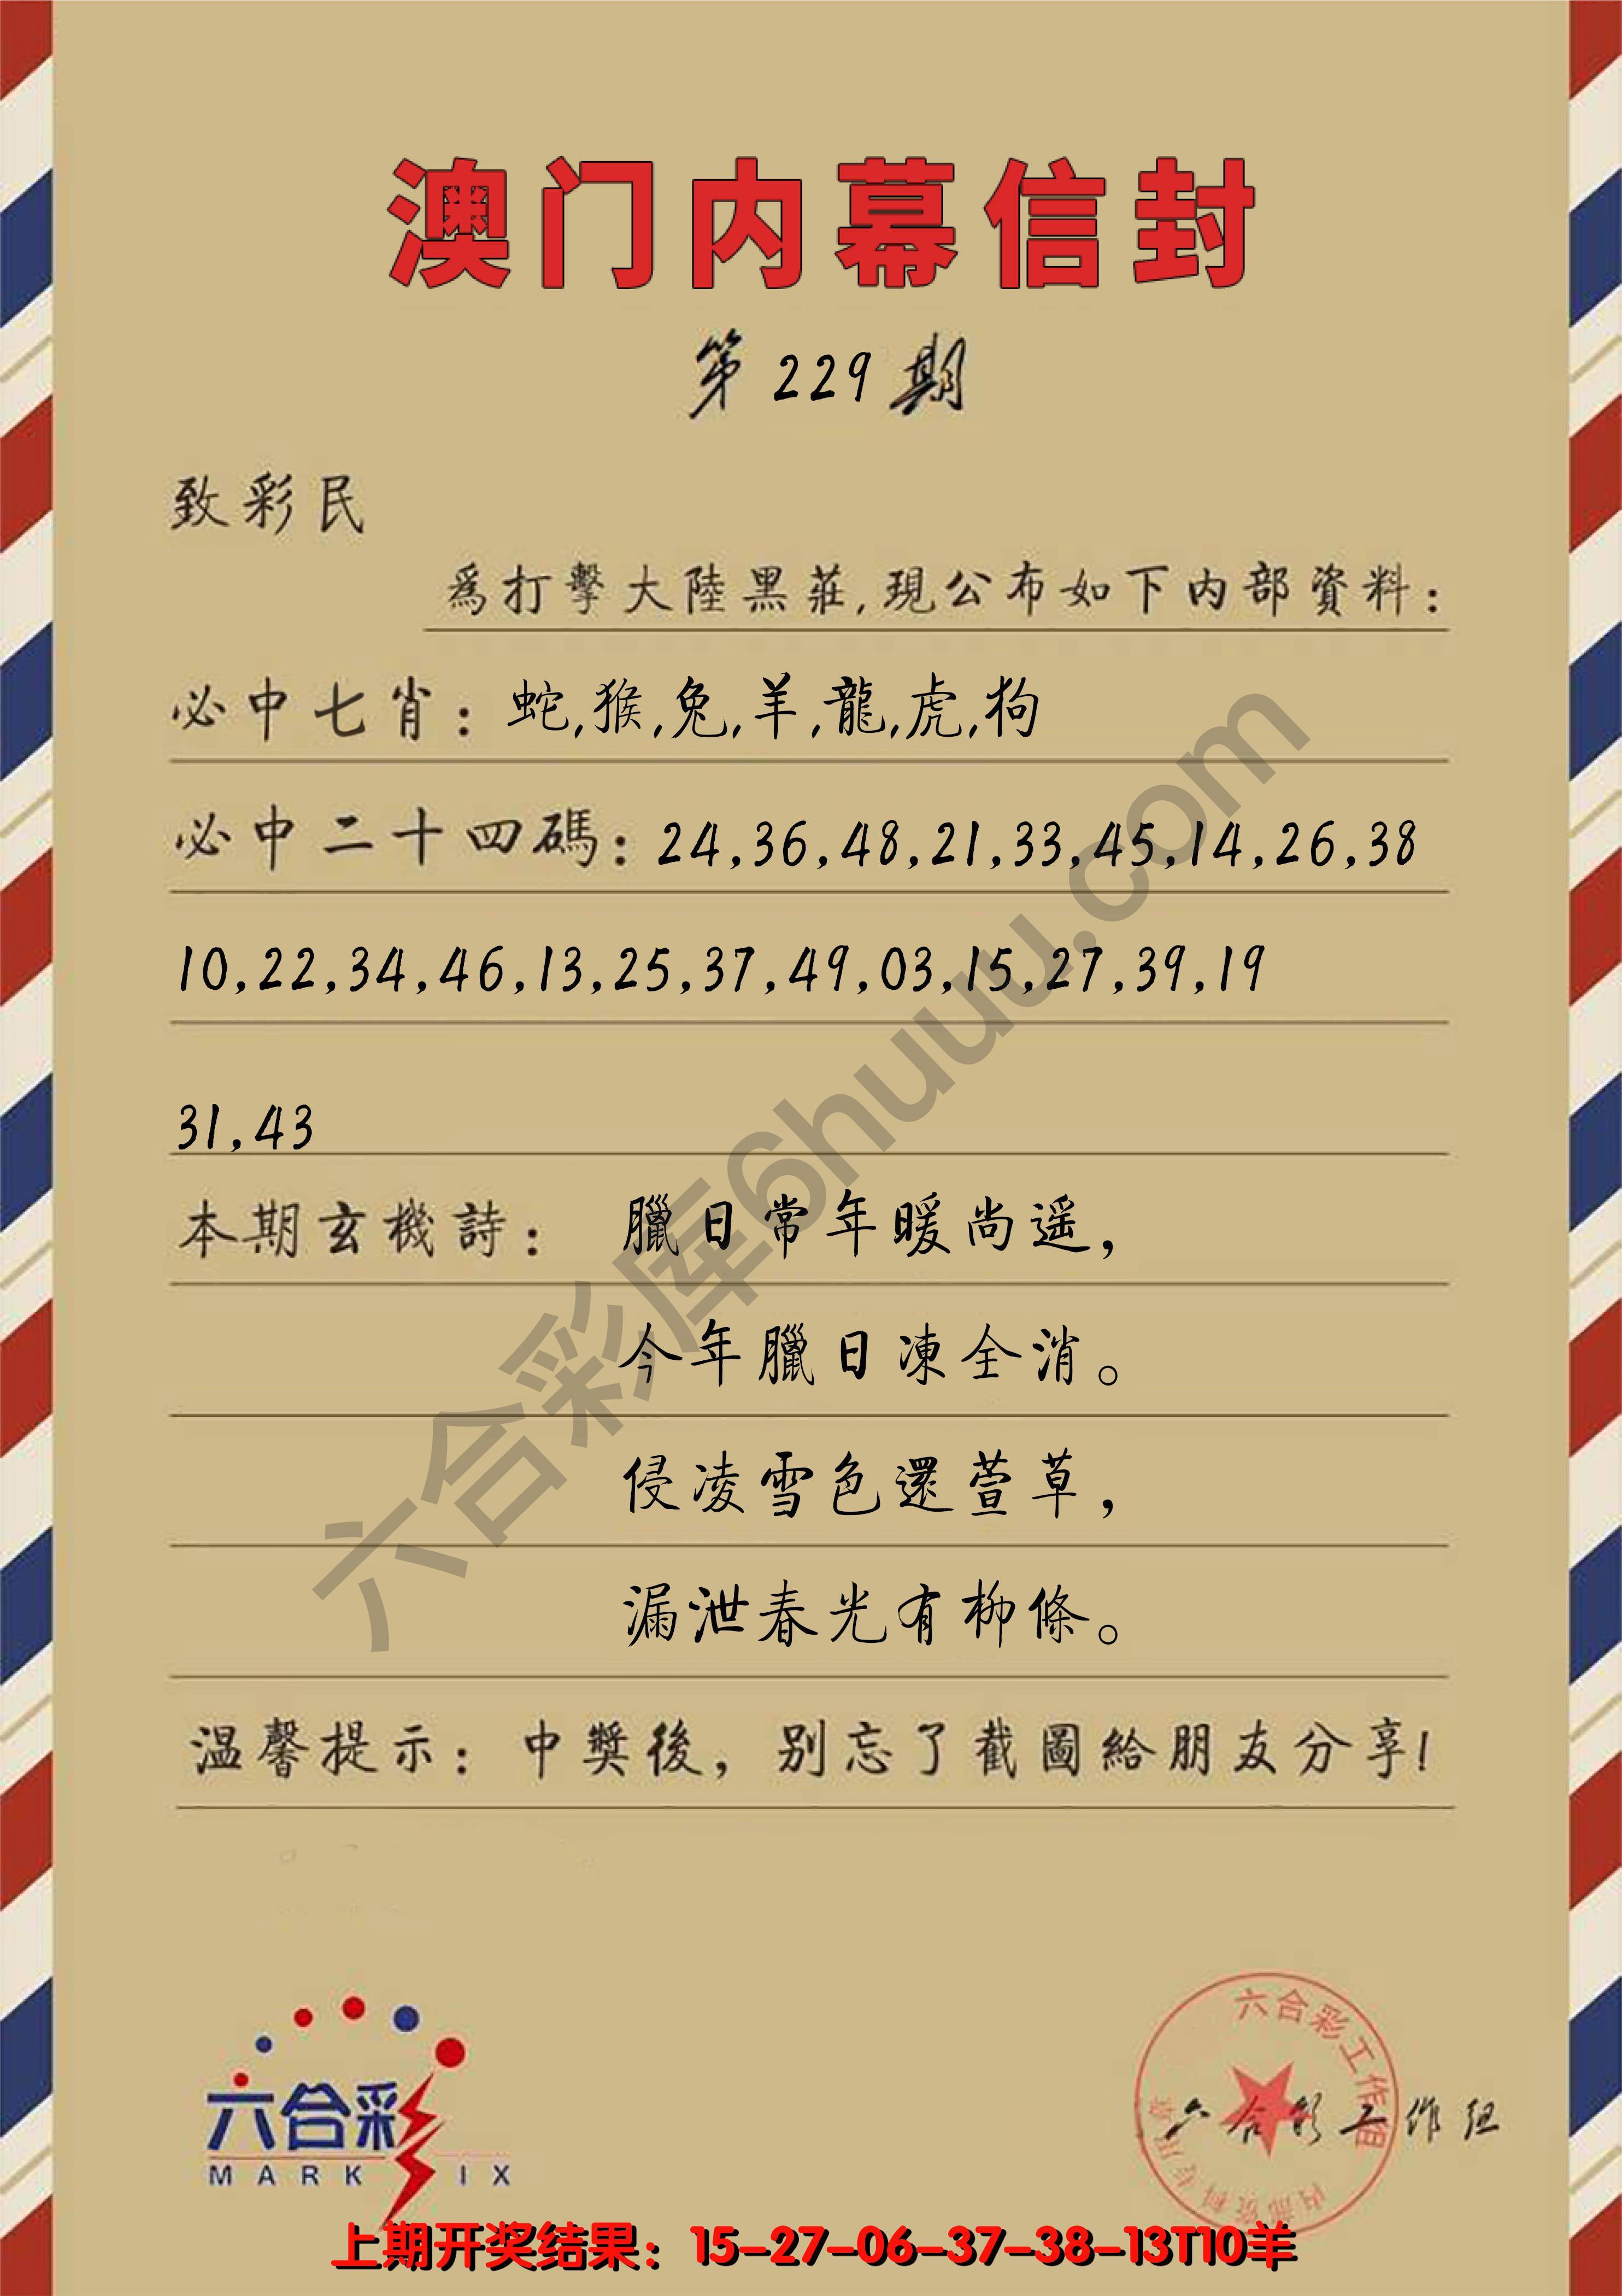 澳门内幕信封
第229期
致彩民
為打擊大陸黑莊,現公布如下内部資料:
必中七肖:蛇,猴,兔,羊,龍,虎,狗
必中二十四碼:24,36,48,21,33,45,14,26,38
10,22,34,46,13,25,37,49,03,15,27,39,19
31,43
本期玄機詩: 臘日常年暖尚遥,
今年臘日凍全消。
侵凌雪色還萱草,
漏泄春光有柳條。
温馨提示:中獎後,别忘了截圖給朋友分享!
六合彩库6huuu.com
六合彩
MARK IX
六合彩工作组
六合彩工作组
内部资料专用章
上期开奖结果:15-27-06-37-38-13T10羊